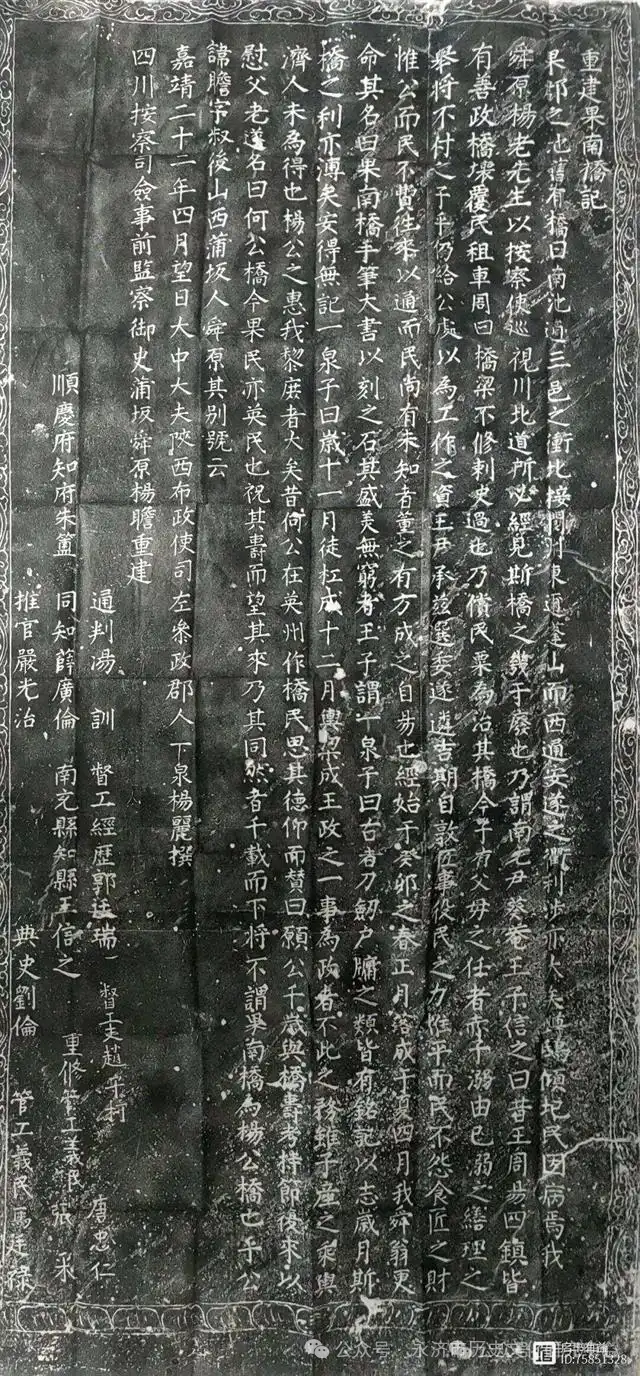 重建果南橋記
果郡之池舊有橋曰南池過三邑之衝北接閬州東通蓬山而西通安遂之衢利涉亦大矣傾圮民因病焉我
舜原楊老先生以按察使巡視川北道所必經見斯橋之幾于廢也乃謂南充尹葵菴王子信之曰昔王周易四鎮皆
有善政橋壞覆民租車周曰橋梁不修刺史過也乃償民粟為治其橋今子有父毋之任者亦予溺由已溺之繕理之
舉将不付之子乎仍給公處以為工作之資王尹承茲選委遂遴吉期自敦匠事役民之力惟平而民不怨食匠之財
惟公而民不費徃來以通而民尚有未知者董之有方成之自易也經始于癸卯之春正月落成于夏四月我舜翁更
命其名曰果南橋手筆大書以刻之石其盛美無窮者王子謂一泉子曰古者刀劒户牖之類皆有銘記以志歲月斯
橋之利亦溥矣安得無記一泉子曰歲十一月徒杠成十二月輿梁成王政之一事為政者不此之務雖子產之乘輿
濟人未為得也楊公之惠我黎庶者大矣昔何公在英州作橋民思其德仰而賛曰願公千歲與橋壽考持節復來以
慰父老遂名曰何公橋今果民亦英民也祝其壽而望其來乃其同然者千載而下将不謂果南橋為楊公橋也乎公
諱瞻字叔後山西蒲坂人舜原其别號云
嘉靖二十二年四月望日大中大夫陝西布政使司左叅政郡人下泉楊麗撰
四川按察司僉事前監察御史蒲坂舜原楊瞻重建
順慶府知府朱簠
同知薛廣倫
通判湯 訓
推官嚴光治
南充縣知縣王信之
典史劉倫
督工經歷郭廷瑞
督工吏趙平
重修管工義民張 采
唐忠仁
管工義民馬廷祿
公众号 永济市历史文
ID:75851328